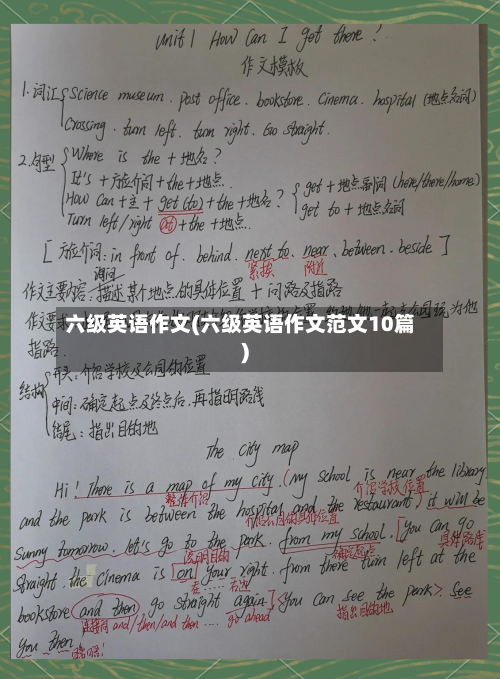 Unit 1 How Can I get there?
作文模板
1.词汇 Science museum. post office. bookstore. cinema. hospital (地点名词)
Crossing. turn left. turn right. Go straight.
2.句型 Where is the + 地名?
It's + 方位介词 + the + 地点.
How can + 主 + get (to) + the + 地名? get + 地点副词 (here/there/home)
Turn left / right at + the + 地点. get to + 地点名词
[方位介词: in front of. behind. next to. near. between. beside]
紧挨 附近
询问
作文主要内容: 描述某个地点的具体位置 + 问路及指路
作文要求
六级英语作文(六级英语作文范文10篇
)
指路.
结构 开头: 介绍学校及公园的位置
中间: 确定起点及终点后, 再指明路线
结尾: 指出目的地
The city map
Hi! There is a map of my city. (My school is near the library
整体介绍 介绍学校位置
and the park is between the hospital and the restaurant) it will be
介绍公园的具体位置
sunny tomorrow. let's go to the park. from my school. [You can go
说明目的 确定起点 具体路线
straight. the cinema is on your right. from there turn left at the
在……右边
bookstore and then go straight again.] <You can see the park>. See
连接词 and/then/and then .... go ahead 指出目的地
you then.